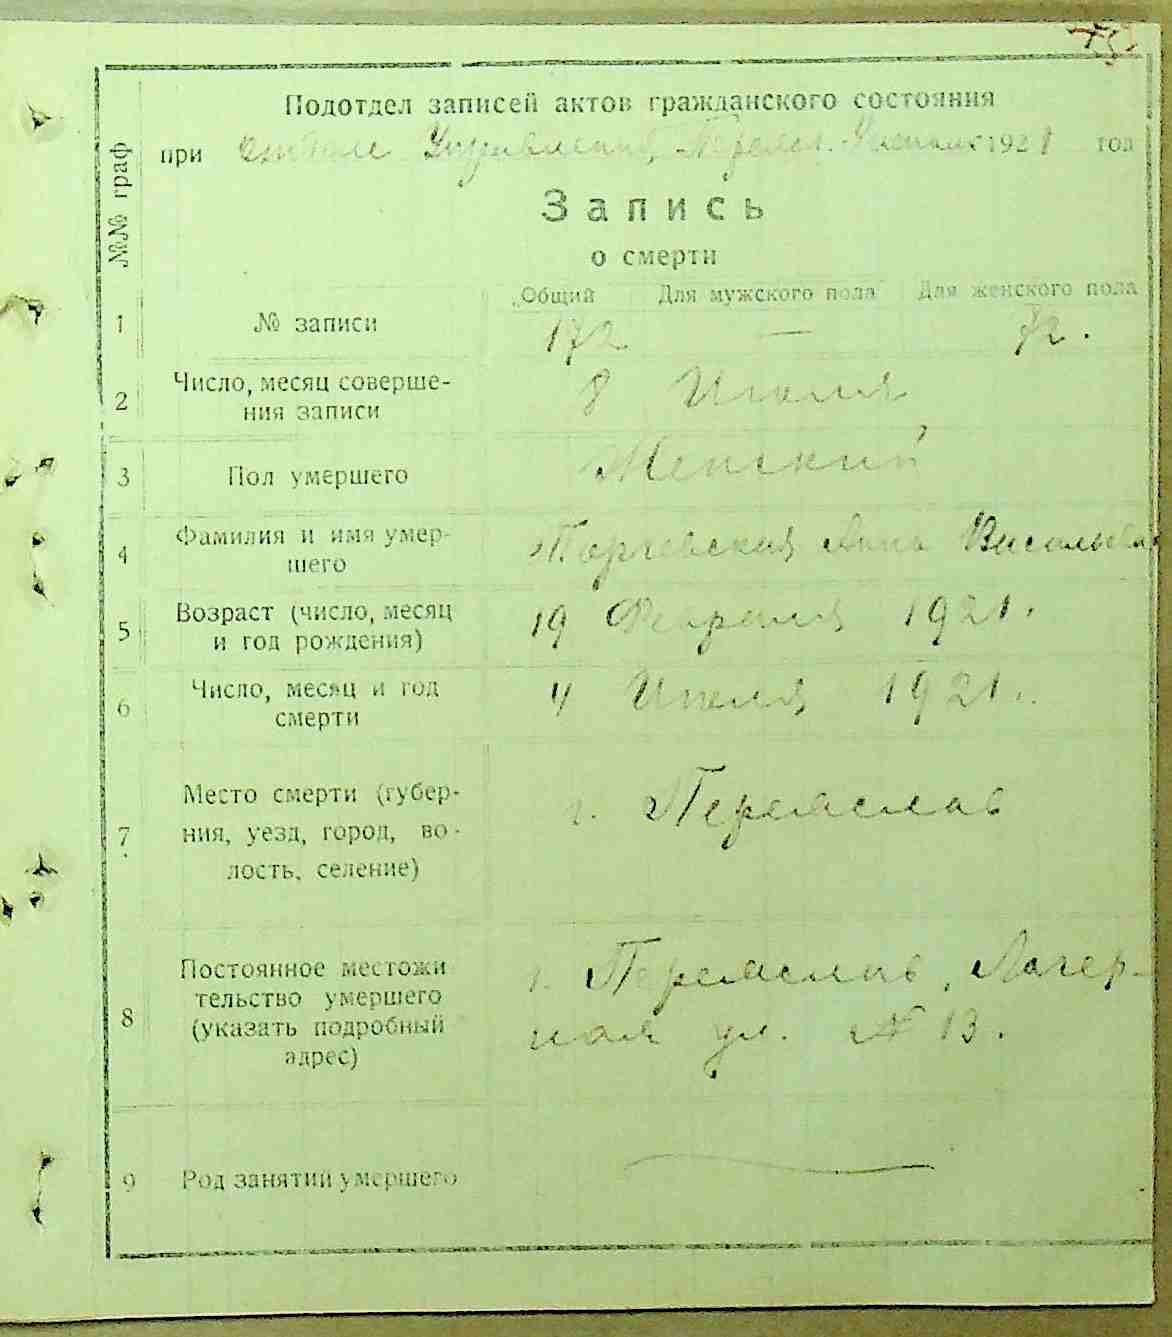 Подотдел записей актов гражданского состояния
при отделе Управления, Переясл. 1921 год
№№ граф
Запись
о смерти
Общий Для мужского пола Для женского пола
1 № записи 172 — 72.
2 Число, месяц соверше-
ния записи 8 Июля
3 Пол умершего Женский
4 Фамилия и имя умер-
шего Торчевская Анна Василье
5 Возраст (число, месяц
и год рождения) 19 Февраля 1921.
6 Число, месяц и год
смерти 4 Июля 1921.
7 Место смерти (губер-
ния, уезд, город, во-
лость, селение) г. Переяслав
8 Постоянное местожи
тельство умершего
(указать подробный
адрес) г. Переяслав, Лагер-
ная ул. № 13.
9 Род занятий умершего —